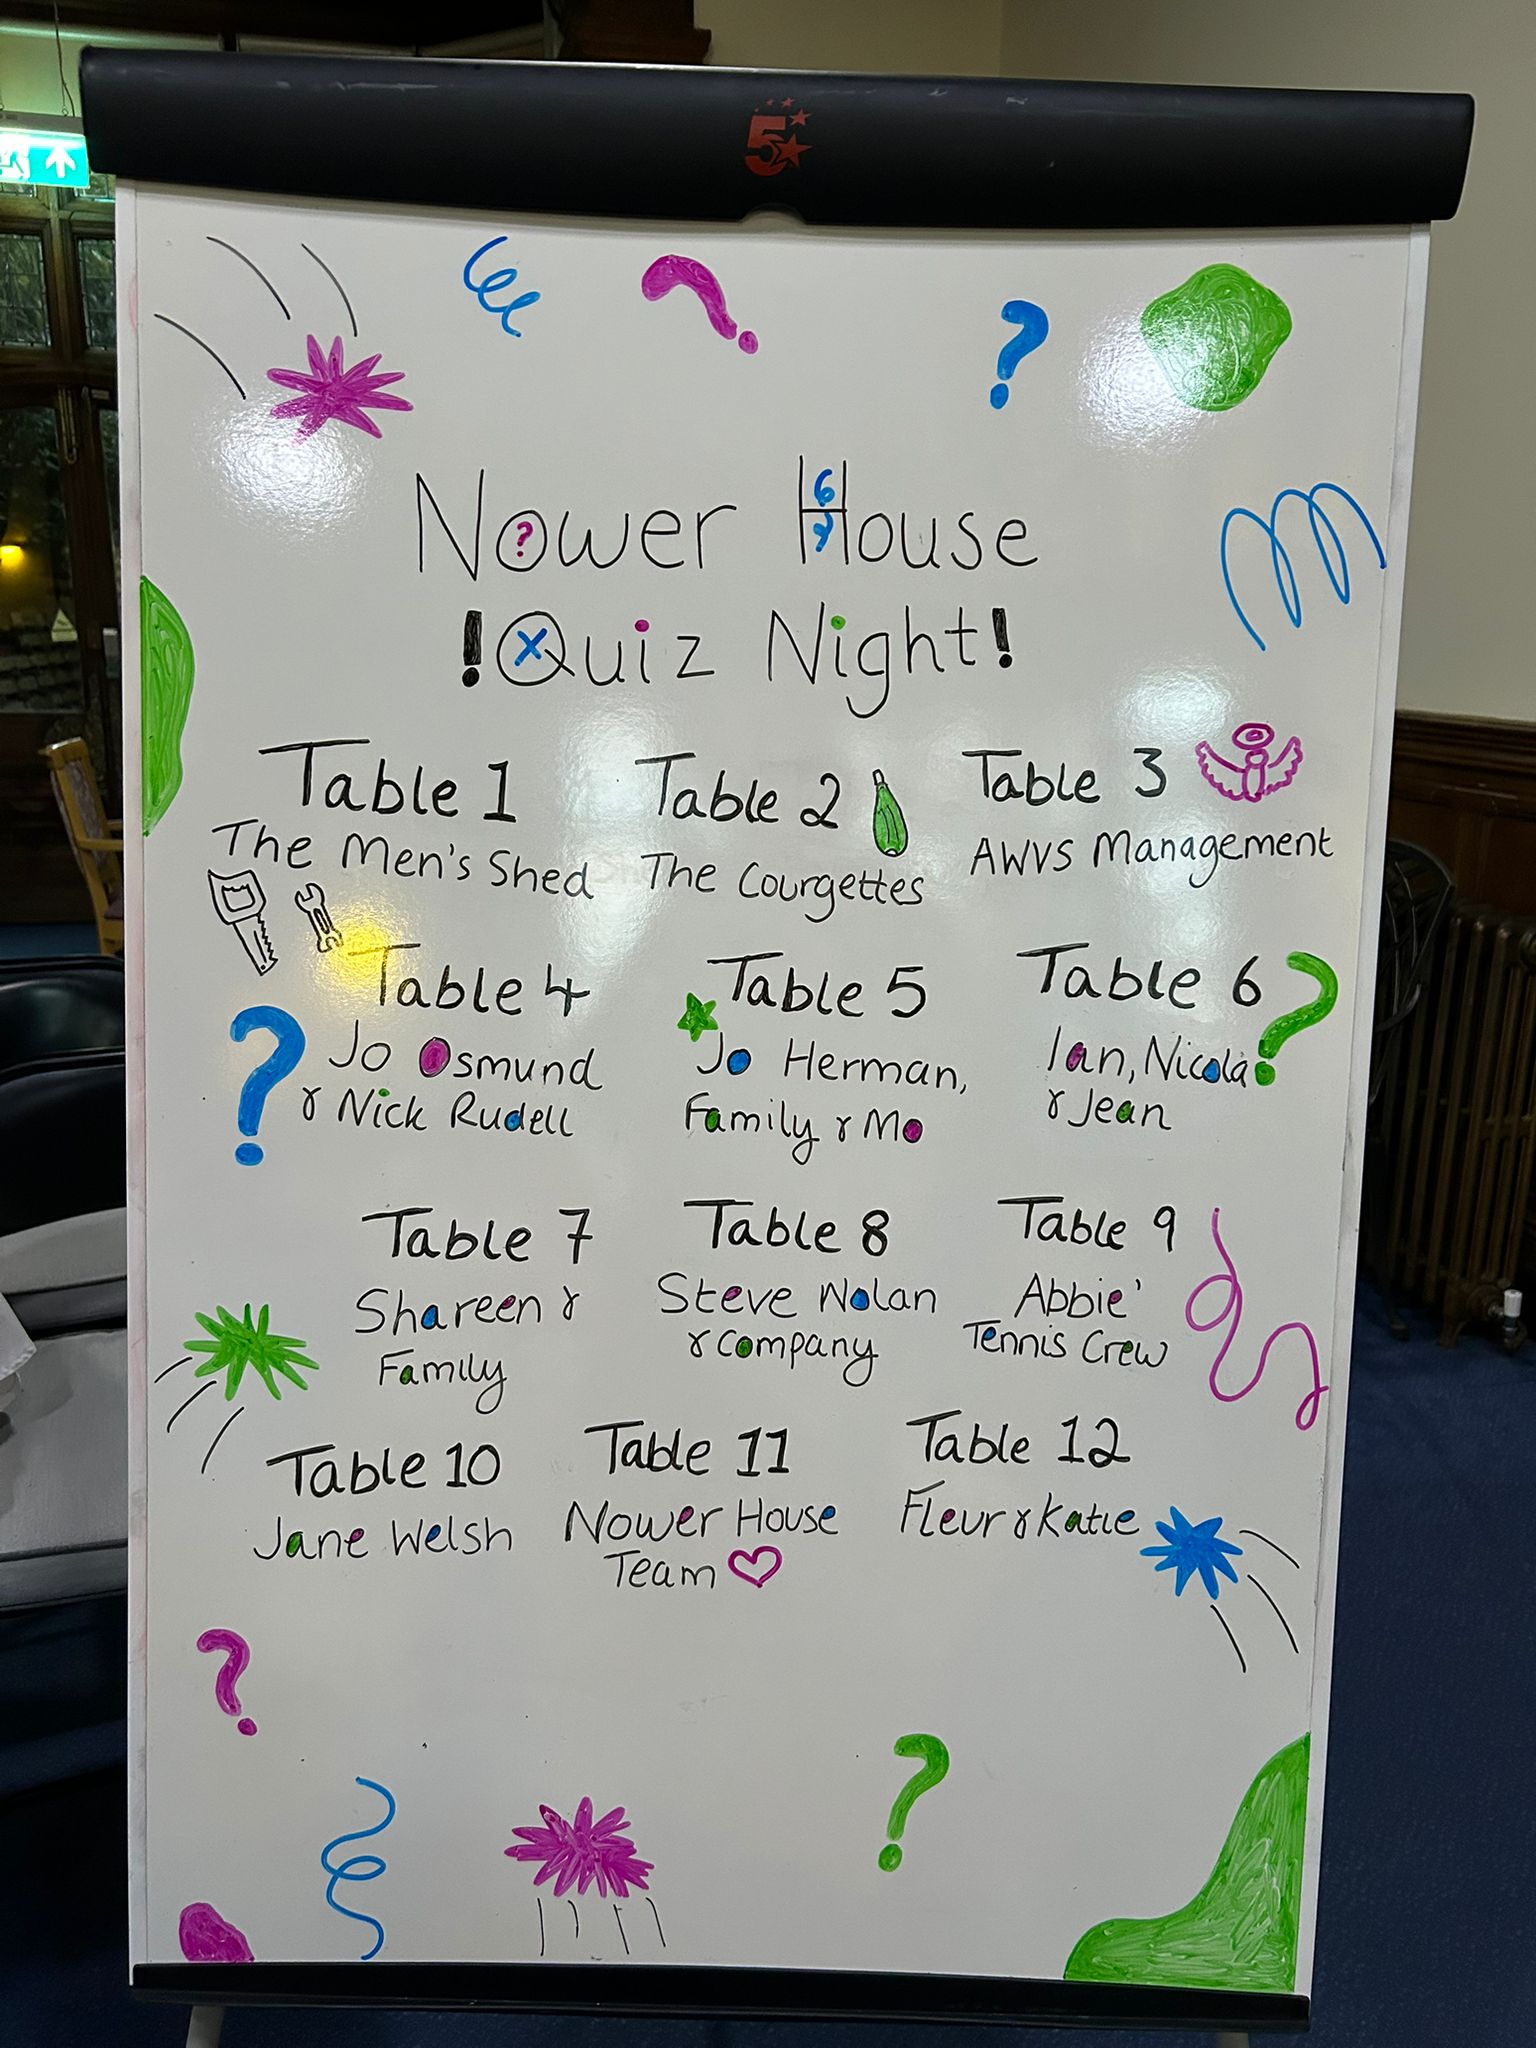 5
Nower House
!Quiz Night!
Table 1
The Men's Shed
Table 2
The Courgettes
Table 3
AWVS Management
Table 4
Jo Osmund
& Nick Rudell
Table 5
Jo Herman,
Family & Mo
Table 6
Ian, Nicola
& Jean
Table 7
Shareen &
Family
Table 8
Steve Nolan
& Company
Table 9
Abbie'
Tennis Crew
Table 10
Jane Welsh
Table 11
Nower House
Team
Table 12
Fleur & Katie